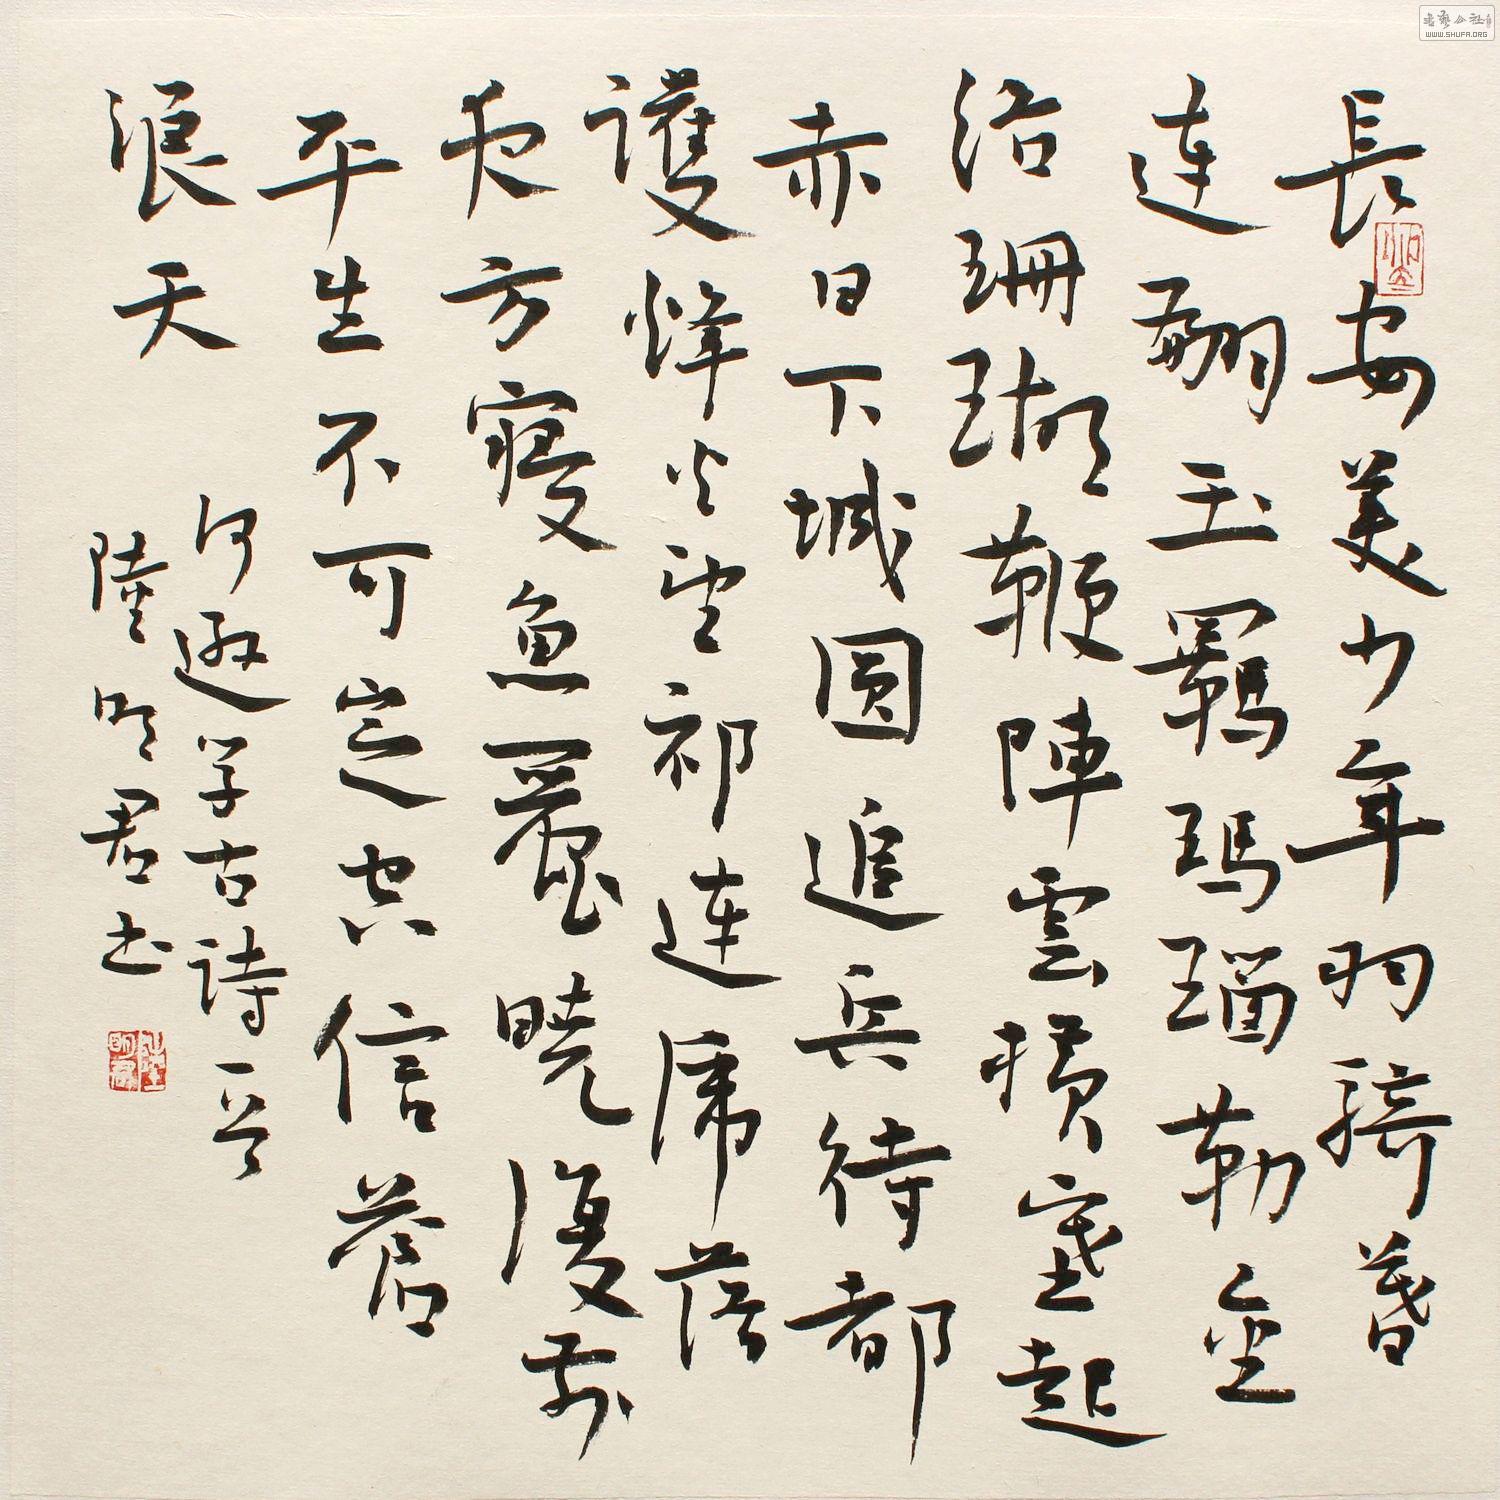 長安美少年羽騎暮
連翩玉羈瑪瑙勒金
絡珊瑚鞭陣雲橫塞起
赤日下城圓追兵待都
護烽火望祁連虎落
夜方寢魚麗曉復前
平生不可定空信蒼
浪天
何遜学古詩一首
陸明君书
陸明君
書藝公社
WWW.SHUFA.ORG